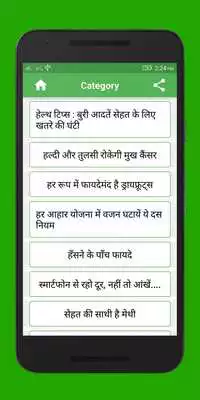 2:24PM
Category
हेल्थ टिप्स : बुरी आदतें सेहत के लिए
खतरे की घंटी
हल्दी और तुलसी रोकेगी मुख कैंसर
हर रूप में फायदेमंद है ड्रायफ्रूट्स
हर आहार योजना में वजन घटायें ये दस
नियम
हँसने के पाँच फायदे
स्मार्टफोन से रहो दूर, नहीं तो आंखें....
सेहत की साथी है मेथी